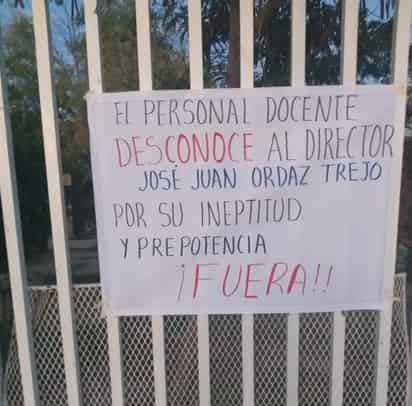 EL PERSONAL DOCENTE
DESCONOCE AL DIRECTOR
JOSÉ JUAN ORDAZ TREJO
POR SU INEPTITUD
Y PREPOTENCIA
¡FUERA!!